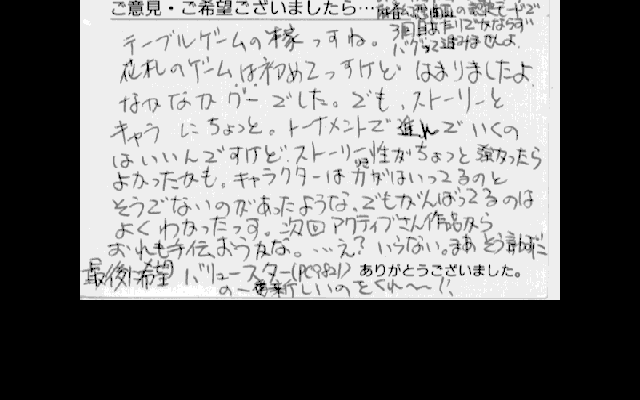 ご意見・ご希望ございましたら…
3回目あたりでかならず
バグって進みませんよ
テーブルゲームの嫁っすね。
花札のゲームは初めてっすけど はまりましたよ
なかなかグーでした。でも、ストーリーと
キャラ にちょっと。トーナメントで進んでいくの
はいいんですけど、ストーリー性がちょっと強かったら
よかったかも。キャラクターは力がはいってるのと
そうでないのがあったような、でもがんばってるのは
よくわかったっす。次回アクティブさん作品なら
おれも手伝おうかな。…え?いらない。まあ そう言わずに
最後に希望 バリュースター(PC9821)
の一番新しいのをくれ〜!!
ありがとうございました。